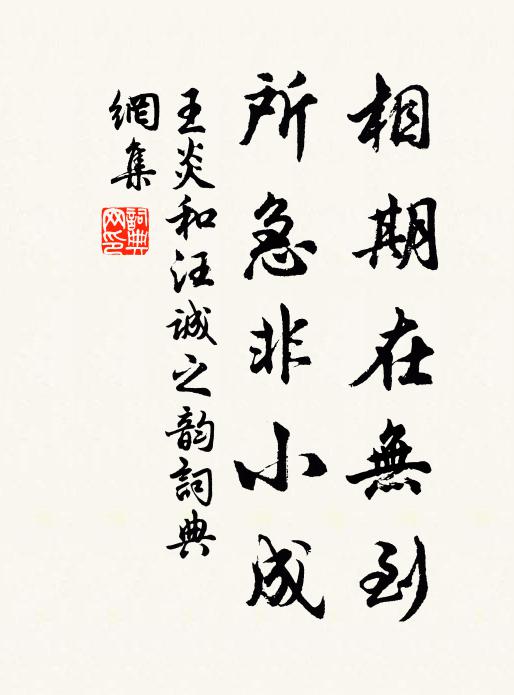 相期在無到
所急非小成
王炎和汪誠之韵詞典
網集
詞典网印